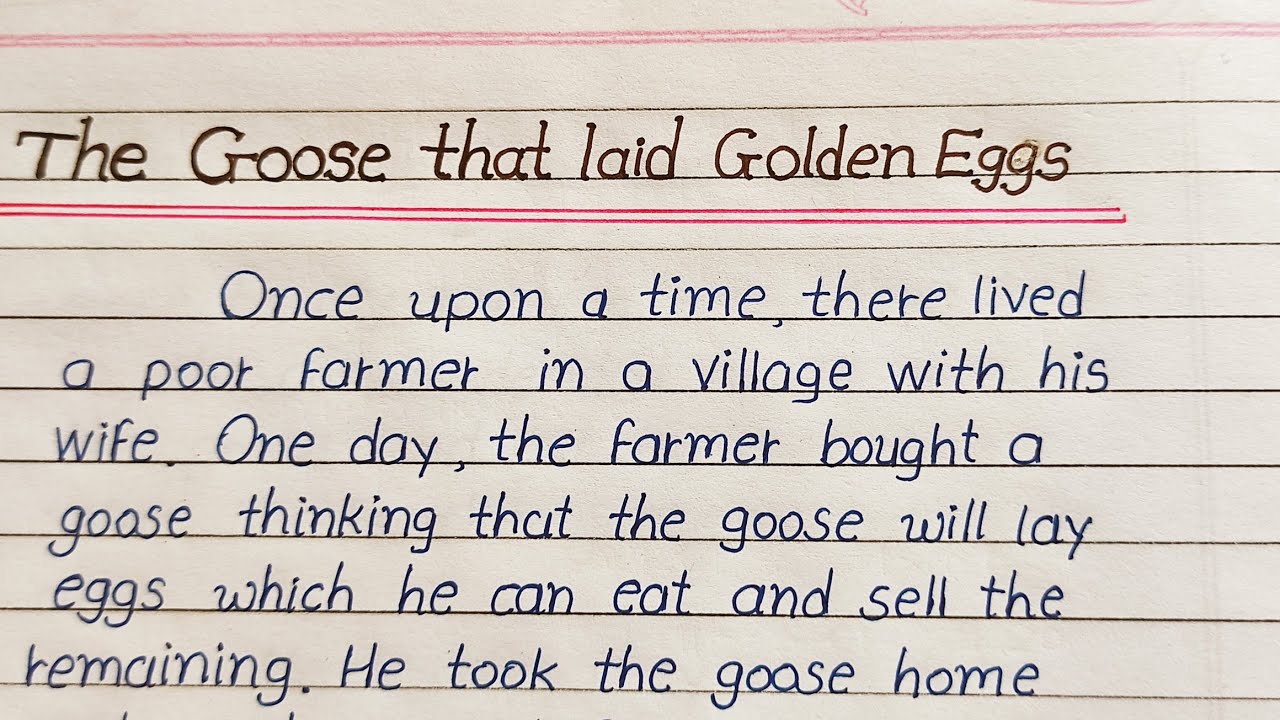 The Goose that laid Golden Eggs
Once upon a time, there lived
a poor farmer in a village with his
wife. One day, the farmer bought a
goose thinking that the goose will lay
eggs which he can eat and sell the
remaining. He took the goose home